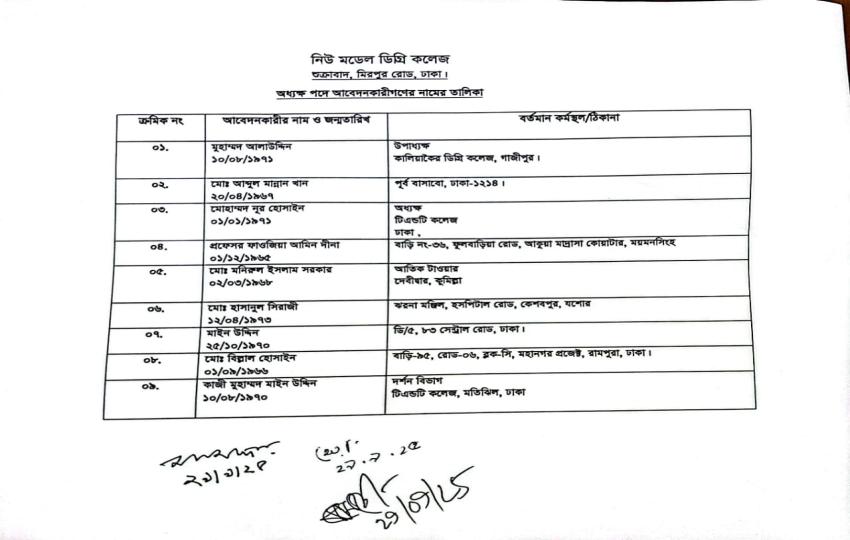 নিউ মডেল ডিগ্রি কলেজ
শুক্রাবাদ, মিরপুর রোড, ঢাকা।
অধ্যক্ষ পদে আবেদনকারীগণের নামের তালিকা
ক্রমিক নং আবেদনকারীর নাম ও জন্মতারিখ বর্তমান কর্মস্থল/ঠিকানা
০১. মুহাম্মদ আলাউদ্দিন উপাধ্যক্ষ
১০/০৮/১৯৭১ কালিয়াকৈর ডিগ্রি কলেজ, গাজীপুর।
০২. মোঃ আব্দুল মান্নান খান পূর্ব বাসাবো, ঢাকা-১২১৪।
২০/০৪/১৯৬৭
০৩. মোহাম্মদ নূর হোসাইন অধ্যক্ষ
০১/০১/১৯৭১ টিএন্ডটি কলেজ
ঢাকা .
০৪. প্রফেসর ফাওজিয়া আমিন দীনা বাড়ি নং-৩৬, ফুলবাড়িয়া রোড, আকুয়া মাদ্রাসা কোয়াটার, ময়মনসিংহ
০১/১২/১৯৬৫
০৫. মোঃ মনিরুল ইসলাম সরকার আতিক টাওয়ার
০২/০৩/১৯৬৮ দেবীদ্বার, কুমিল্লা
০৬. মোঃ হাসানুল সিরাজী ঝরনা মঞ্জিল, হসপিটাল রোড, কেশবপুর, যশোর
১২/০৪/১৯৭৩
০৭. মাইন উদ্দিন ডি/৫, ৮৩ সেন্ট্রাল রোড, ঢাকা।
২৫/১০/১৯৭০
০৮. মোঃ বিল্লাল হোসাইন বাড়ি-৯৫, রোড-০৬, ব্লক-সি, মহানগর প্রজেক্ট, রামপুরা, ঢাকা।
০১/০৯/১৯৬৬
০৯. কাজী মুহাম্মদ মাইন উদ্দিন দর্শন বিভাগ
১০/০৮/১৯৭০ টিএন্ডটি কলেজ, মতিঝিল, ঢাকা